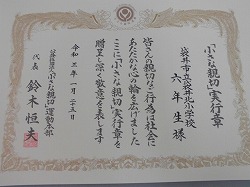 「小さな親切」実行章
袋井市立袋井北小学校
六年生 様
皆さんの親切なご行為は社会に
あたたかな心の輪を広げました
ここに「小さな親切」実行章を
贈呈し深く敬意を表します
令和三年一月二十五日
「小さな親切」運動本部
代表 鈴木恒夫